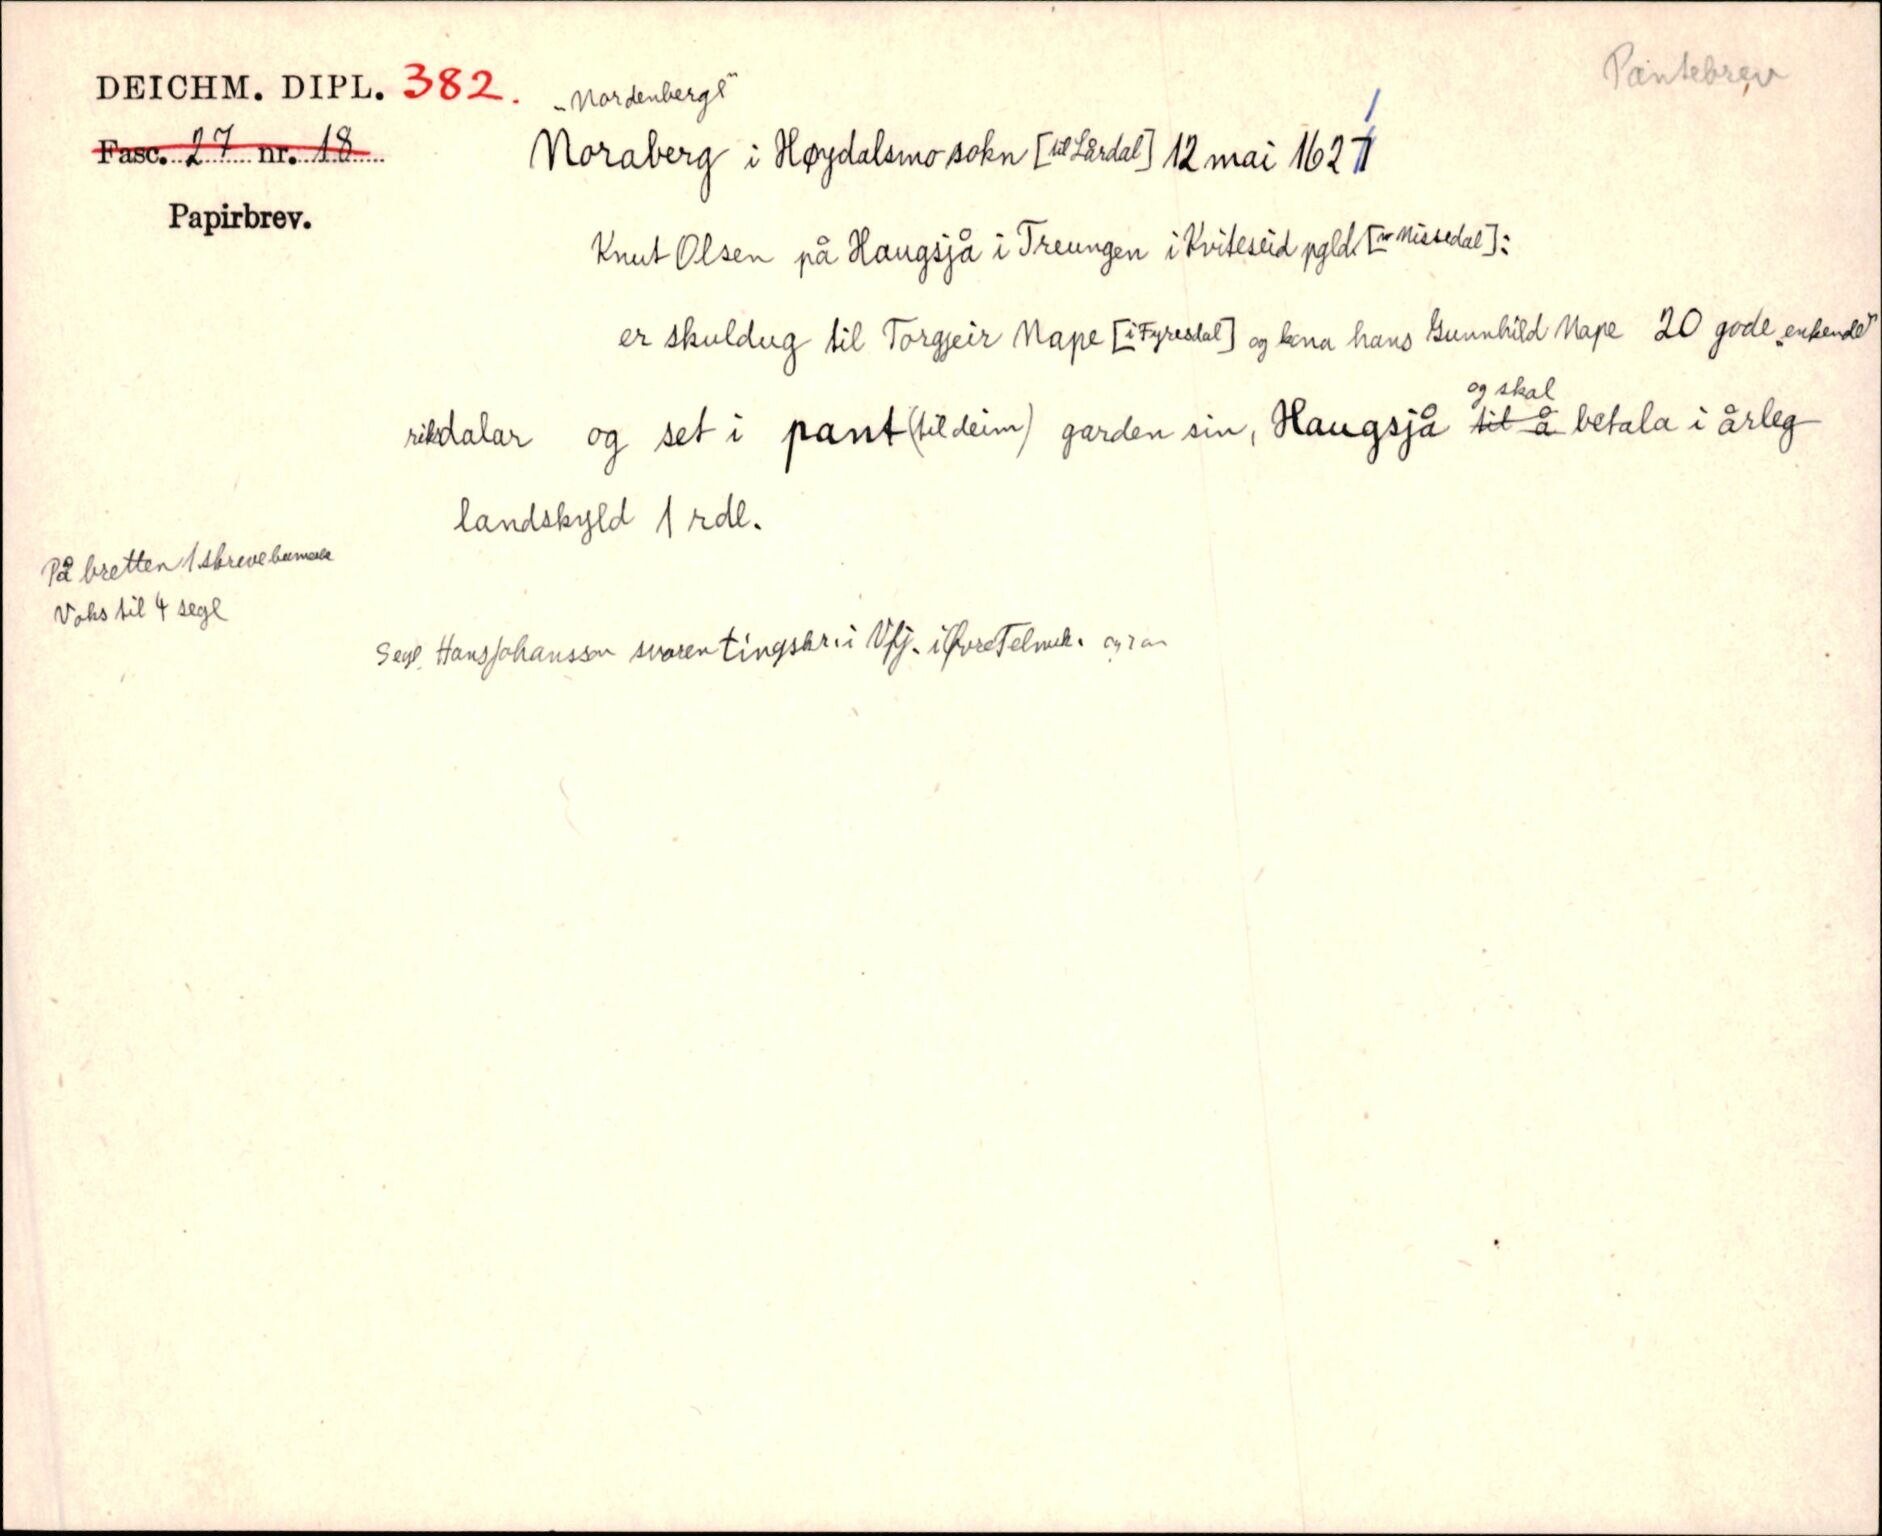 Pantebrev
DEICHM. DIPL. 382.
"Nordenberge"
Fasc. 27 nr. 18
Noraberg i Høydalsmo sokn [til Lårdal] 12 mai 1627
Papirbrev.
Knut Olsen på Haugsjå i Treungen i Kviteseid pgld. [no Nissedal]:
er skuldug til Torgjeir Nape [i Fyresdal] og kona hans Gunnhild Nape 20 gode "enkende"
og skal
riksdalar og set i pant (til deim) garden sin, Haugsjå til å betala i årleg
landskyld 1 rdl.
På bretten 1 skreve bumerke
Voks til 4 segl
Segl. Hans Johansson svoren tingskr. i Vfj. i Øvre Telmrk.